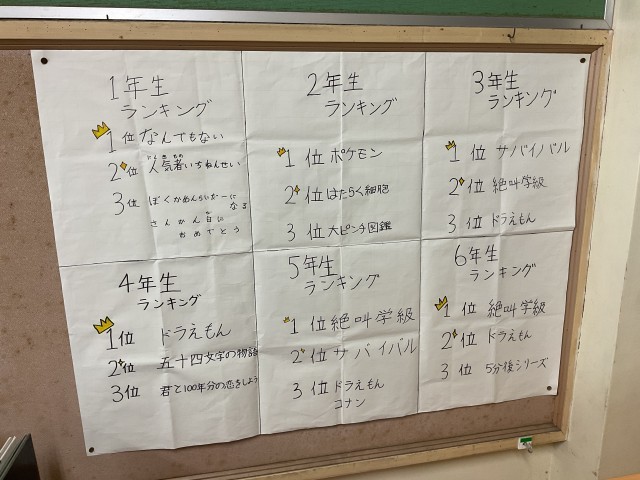 1年生
ランキング
1位 なんでもない
2位 人気者いちねんせい
3位 ぼくかめんらいだーに
なる
さんかん日に
おめでとう
2年生
ランキング
1位 ポケモン
2位 はたらく細胞
3位 大ピンチ図鑑
3年生
ランキング
1位 サバイバル
2位 絶叫学級
3位 ドラえもん
4年生
ランキング
1位 ドラえもん
2位 五十四文字の物語
3位 君と100年分の恋をしよう
5年生
ランキング
1位 絶叫学級
2位 サバイバル
3位 ドラえもん
コナン
6年生
ランキング
1位 絶叫学級
2位 ドラえもん
3位 5分後シリーズ